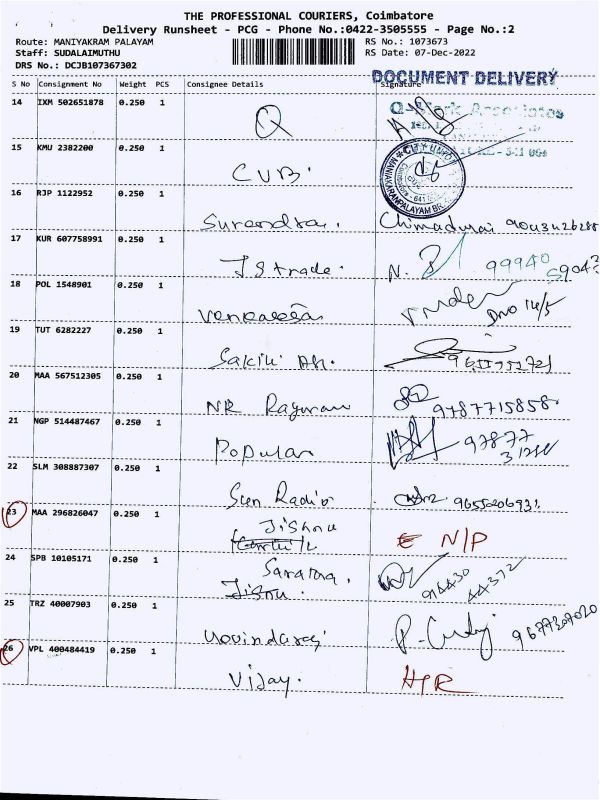 THE PROFESSIONAL COURIERS, Coimbatore
Delivery Runsheet - PCG - Phone No.:0422-3505555 - Page No.:2
Route: MANIYAKRAM PALAYAM RS No.: 1073673
Staff: SUDALAIMUTHU RS Date: 07-Dec-2022
DRS No.: DCJB107367302
DOCUMENT DELIVERY
S No Consignment No Weight PCS Consignee Details Signature
14 IXM 502651878 0.250 1
Q
15 KMU 2382200 0.250 1
CUB.
16 RJP 1122952 0.250 1
Surendra.
17 KUR 607758991 0.250 1
JS trade. N. 99940
18 POL 1548901 0.250 1
DNO 14/5
19 TUT 6282227 0.250 1
20 MAA 567512305 0.250 1
NR Raguram 9787715858
21 NGP 514487467 0.250 1
Popular 97877
22 SLM 308887307 0.250 1
Sun Radio
23 MAA 296826047 0.250 1
Jishnu N/P
24 SPB 10105171 0.250 1
Jisnu. 96430 44372
25 TRZ 40007903 0.250 1
Govindaraj 9677307020
26 VPL 400484419 0.250 1
Vijay.